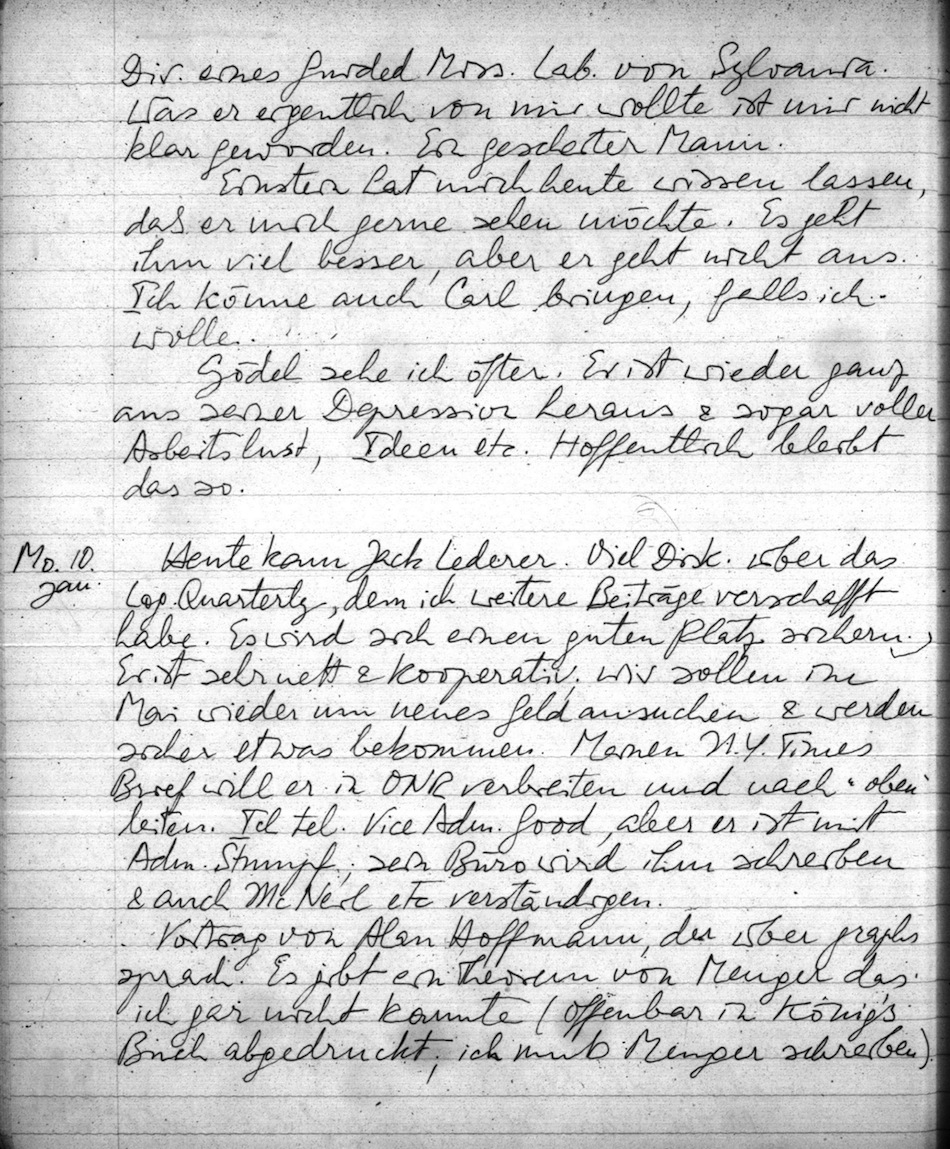 Dir. eines Guided Miss. Lab. von Sylvania.
Was er eigentlich von mir wollte ist mir nicht
klar geworden. Ein gescheiter Mann.
Einstein hat mich heute wissen lassen,
daß er mich gerne sehen möchte. Es geht
ihm viel besser, aber er geht nicht aus.
Ich könne auch Carl bringen, falls ich
wolle.
Gödel sehe ich öfter. Er ist wieder ganz
aus seiner Depression heraus & sogar voller
Arbeitslust, Ideen etc. Hoffentlich bleibt
das so.
Mo. 10. Jan. Heute kam Jack Lederer. Viel Disk. über das
Log. Quarterly, dem ich weitere Beiträge verschafft
habe. Es wird sich einen guten Platz sichern.
Er ist sehr nett & kooperativ. Wir sollen im
Mai wieder um neues Geld ansuchen & werden
sicher etwas bekommen. Meinen N.Y. Times
Brief will er in ONR verbreiten und nach "oben"
leiten. Ich tel. Vice Adm. Good, aber er ist mit
Adm. Stumpf; sein Büro wird ihm schreiben
& auch McNeil etc verständigen.
Vortrag von Alan Hoffmann, der über graphs
sprach. Es gibt ein Theorem von Menger das
ich gar nicht kannte (offenbar in König's
Buch abgedruckt; ich muß Menger schreiben).